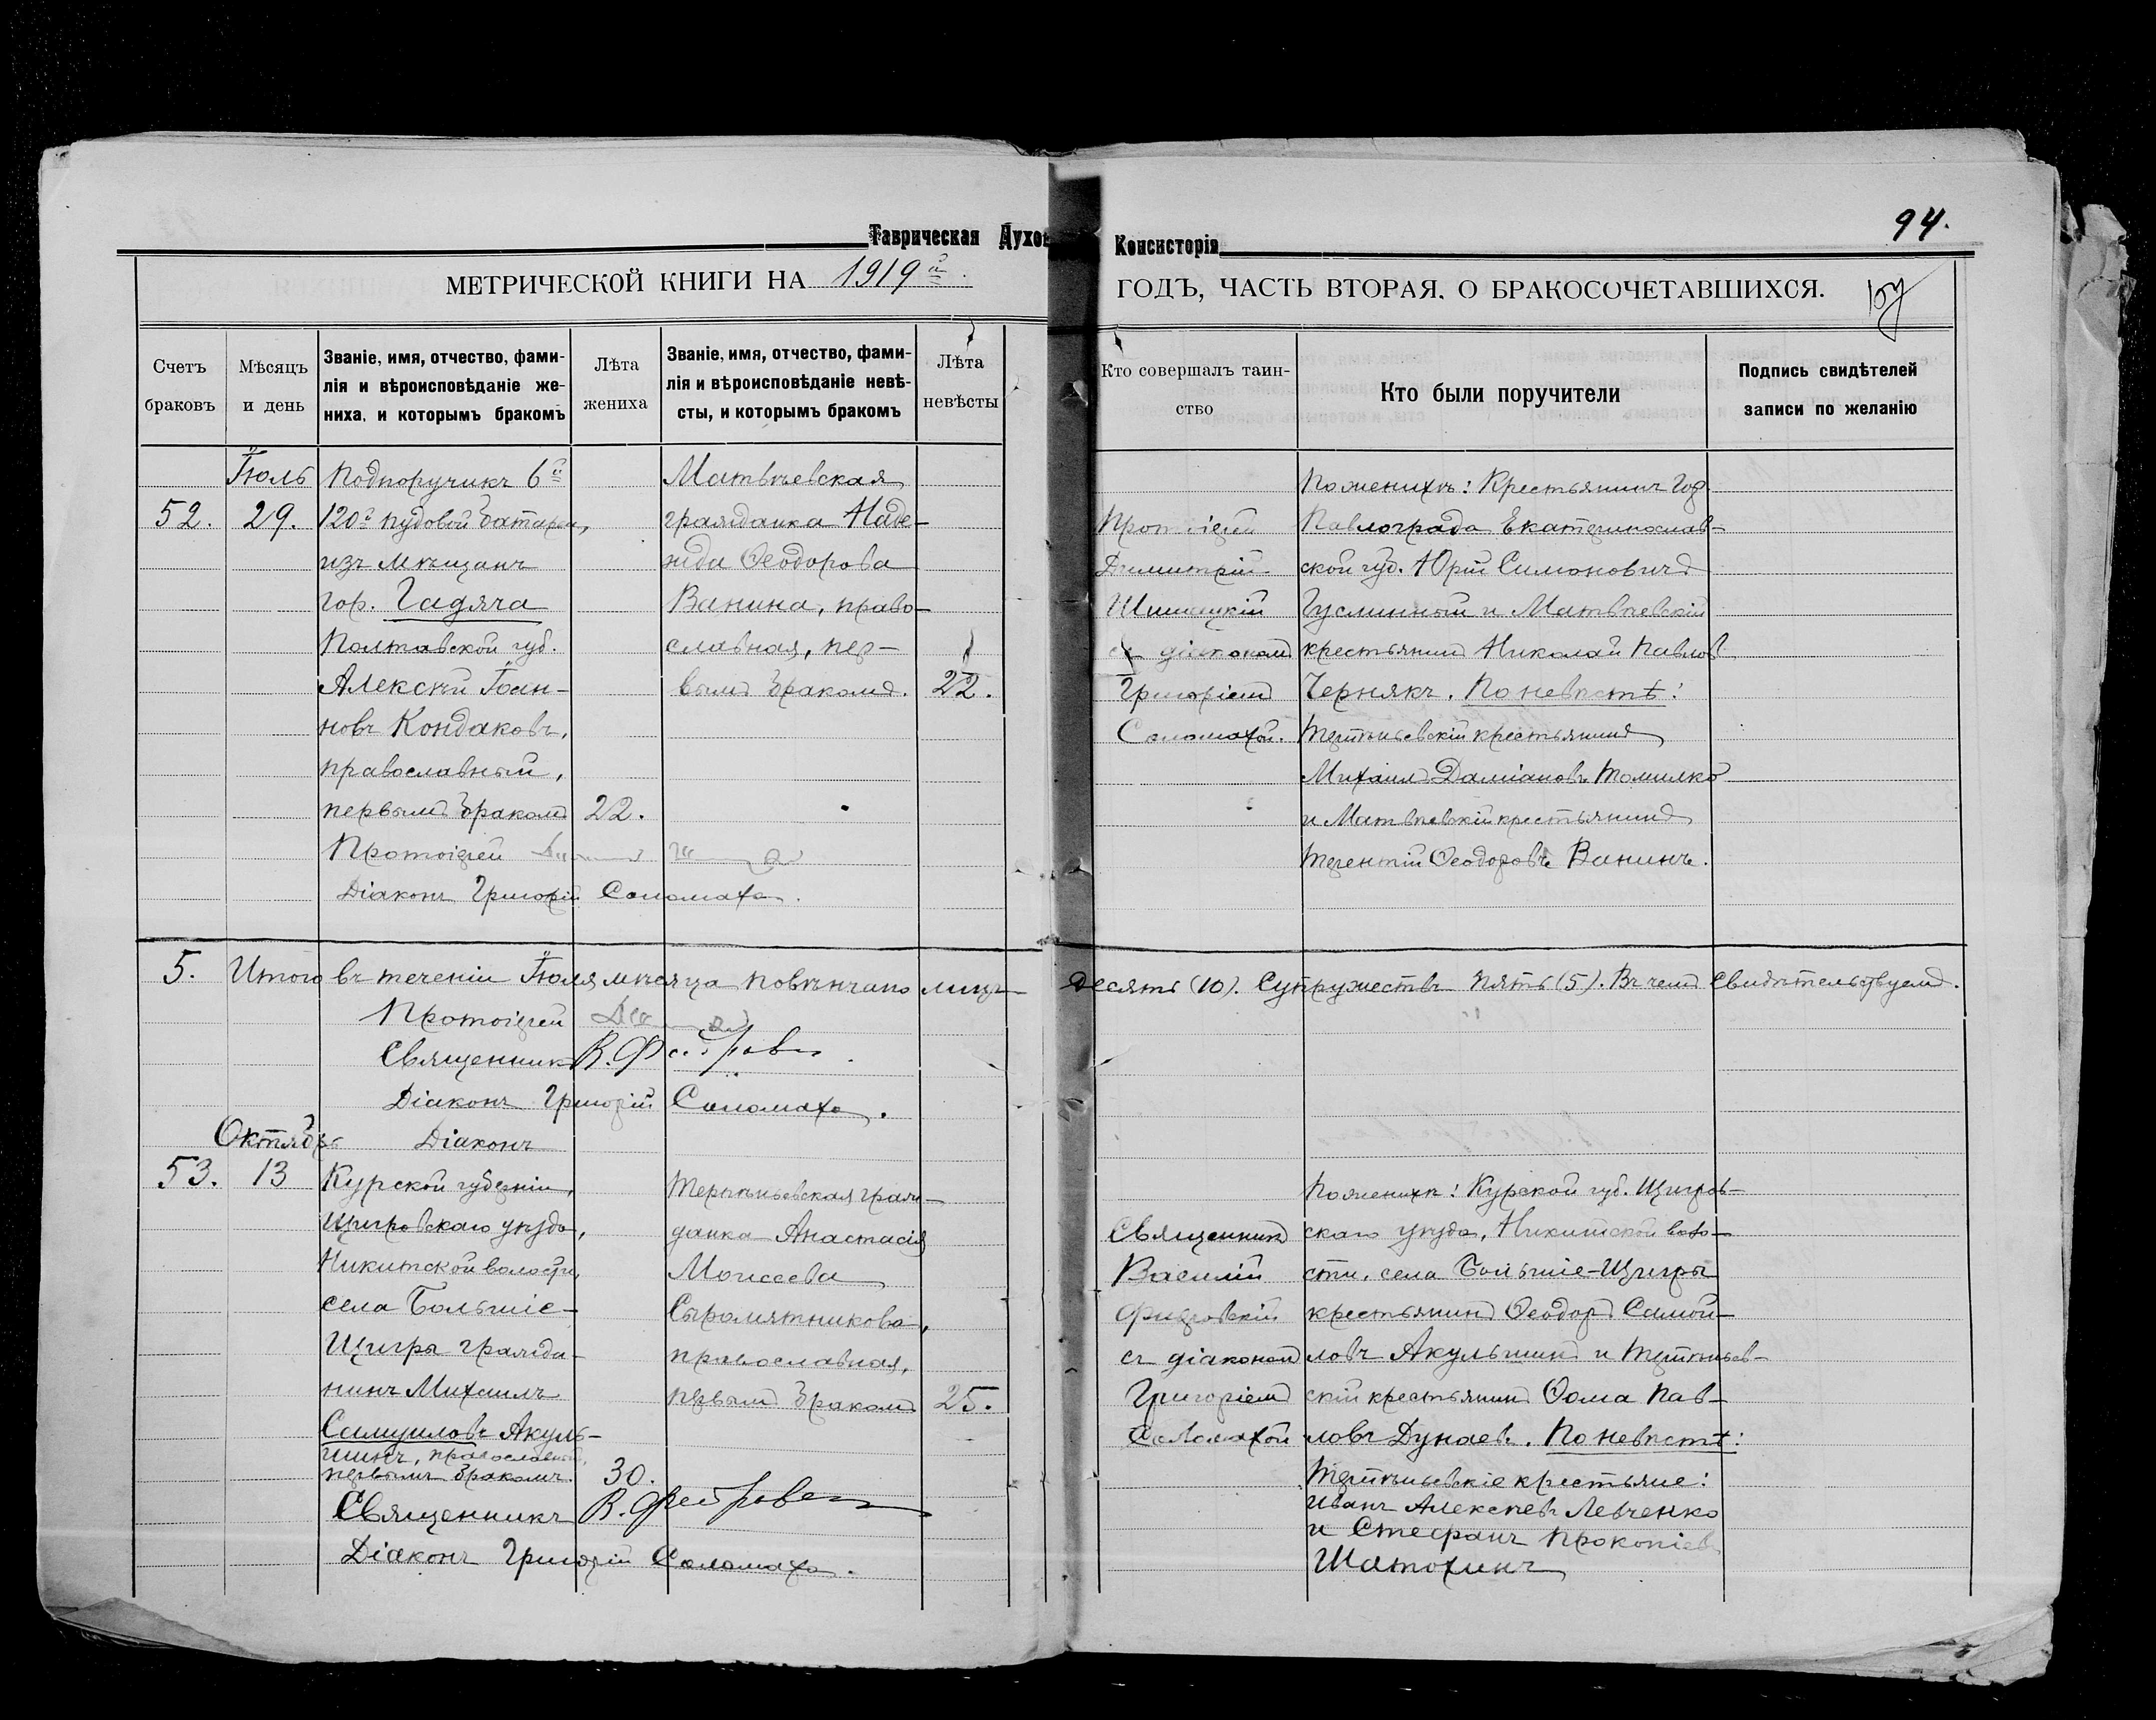 94.
Таврическая Духов
Консисторія
МЕТРИЧЕСКОЙ КНИГИ НА 1919й
ГОДЪ, ЧАСТЬ ВТОРАЯ, О БРАКОСОЧЕТАВШИХСЯ.
Счетъ браковъ
Мѣсяцъ и день
Званіе, имя, отчество, фами-
лія и вѣроисповѣданіе же-
ниха, и которымъ бракомъ
Лѣта жениха
Званіе, имя, отчество, фами-
лія и вѣроисповѣданіе невѣ-
сты, и которымъ бракомъ
Лѣта невѣсты
Кто совершалъ таин-
ство
Кто были поручители
Подпись свидѣтелей
записи по желанію
Іюль
52. 29.
Подпоручикъ 6й
120й пудовой батареи,
изъ мѣщанъ
гор. Гадяча
Полтавской губ.
Алексѣй Іоан-
новъ Кондаковъ,
православный,
первымъ бракомъ
22.
Матвѣевская
гражданка Наде-
жда Ѳеодорова
Ванина, право-
славная, пер-
вымъ бракомъ.
22.
Протоіерей
Димитрій
съ діакономъ
Григоріемъ
Соломахой.
По женихѣ: Крестьянинъ гор.
Павлограда Екатеринослав-
ской губ. Юрій Симоновичъ
Гуслинный и Матвѣевскій
крестьянинъ Николай Павлов
Чернякъ. По невѣстѣ:
крестьянинъ
Михаилъ Даміановъ Томилко
и Матвѣевскій крестьянинъ
Терентій Ѳеодоровъ Ванинъ.
Протоіерей
Діаконъ Григорій Соломаха.
5. Итого въ теченіи Іюля мѣсяца повѣнчано лицъ
десять (10). Супружествъ пять (5). Въ чемъ свидѣтельствуемъ.
Протоіерей
Священникъ В.
Діаконъ Григорій Соломаха.
Діаконъ
Октябрь
53. 13
Курской губерніи,
Щигровскаго уѣзда,
Никитской волости,
села Большіе-
Щигры гражда-
нинъ Михаилъ
Самуиловъ Акуль-
шинъ, православный,
первымъ бракомъ.
30.
гражданка Анастасія
Моисеева
Сыромятникова,
православная,
первымъ бракомъ
25.
Священникъ
Василій
съ діакономъ
Григоріемъ
Соломахой
По женихѣ: Курской губ. Щигров-
скаго уѣзда, Никитской воло-
сти, села Большіе-Щигры
крестьянинъ Ѳеодоръ Самой-
ловъ Акульшинъ и
скій крестьянинъ Ѳома Пав-
ловъ Дунаевъ. По невѣстѣ:
крестьяне:
Иванъ Алексѣевъ Левченко
и Стефанъ Прокопіевъ
Шатохинъ
Священникъ В.
Діаконъ Григорій Соломаха.